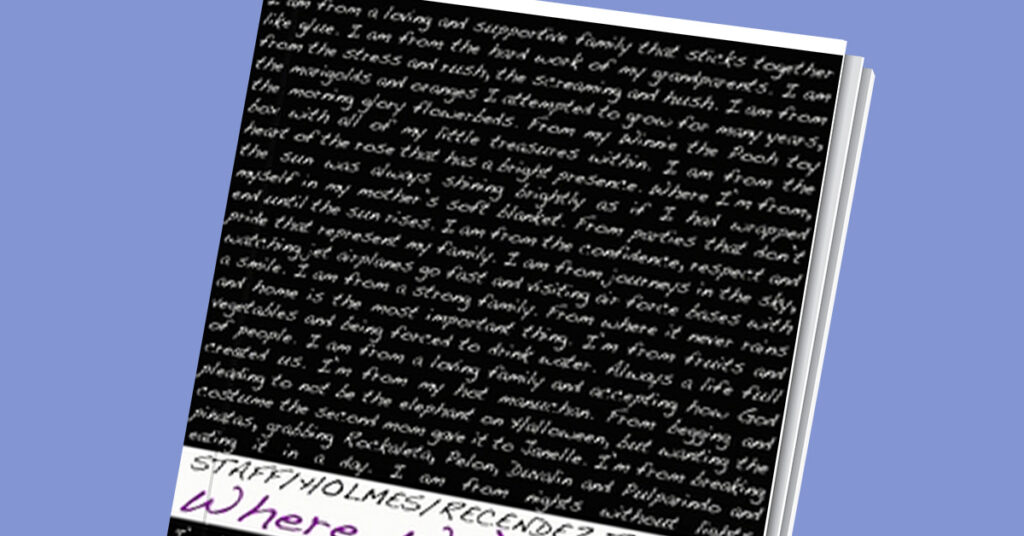 I am from a loving and supportive family that sticks together
like glue. I am from the hard work of my grandparents. I am
from the stress and rush, the screaming and hush. I am from
the marigolds and oranges I attempted to grow for many years,
the morning glory flowerbeds. From my Winnie the Pooh toy
box with all of my little treasures within. I am from the
heart of the rose that has a bright presence. Where I'm from,
the sun was always shining brightly as if I had wrapped
myself in my mother's soft blanket. From parties that don't
end until the sun rises. I am from the confidence, respect and
pride that represent my family. I am from journeys in the sky,
watching jet airplanes go fast and visiting air force bases with
a smile. I am from a strong family. From where it never rains
and home is the most important thing. I'm from fruits and
vegetables and being forced to drink water. Always a life full
of people. I am from a loving family and accepting how God
created us. I'm from my hot Begging and
pleading to not be the elephant on Halloween, but wanting the
costume the second mom gave it to Janelle. I'm from breaking
pinatas, grabbing Rockaleta, Pelon, Duvalin and Pulparindo and
eating it in a day. I am from nights without lights
STAFF/HOLMES/RECENDEZ
Where